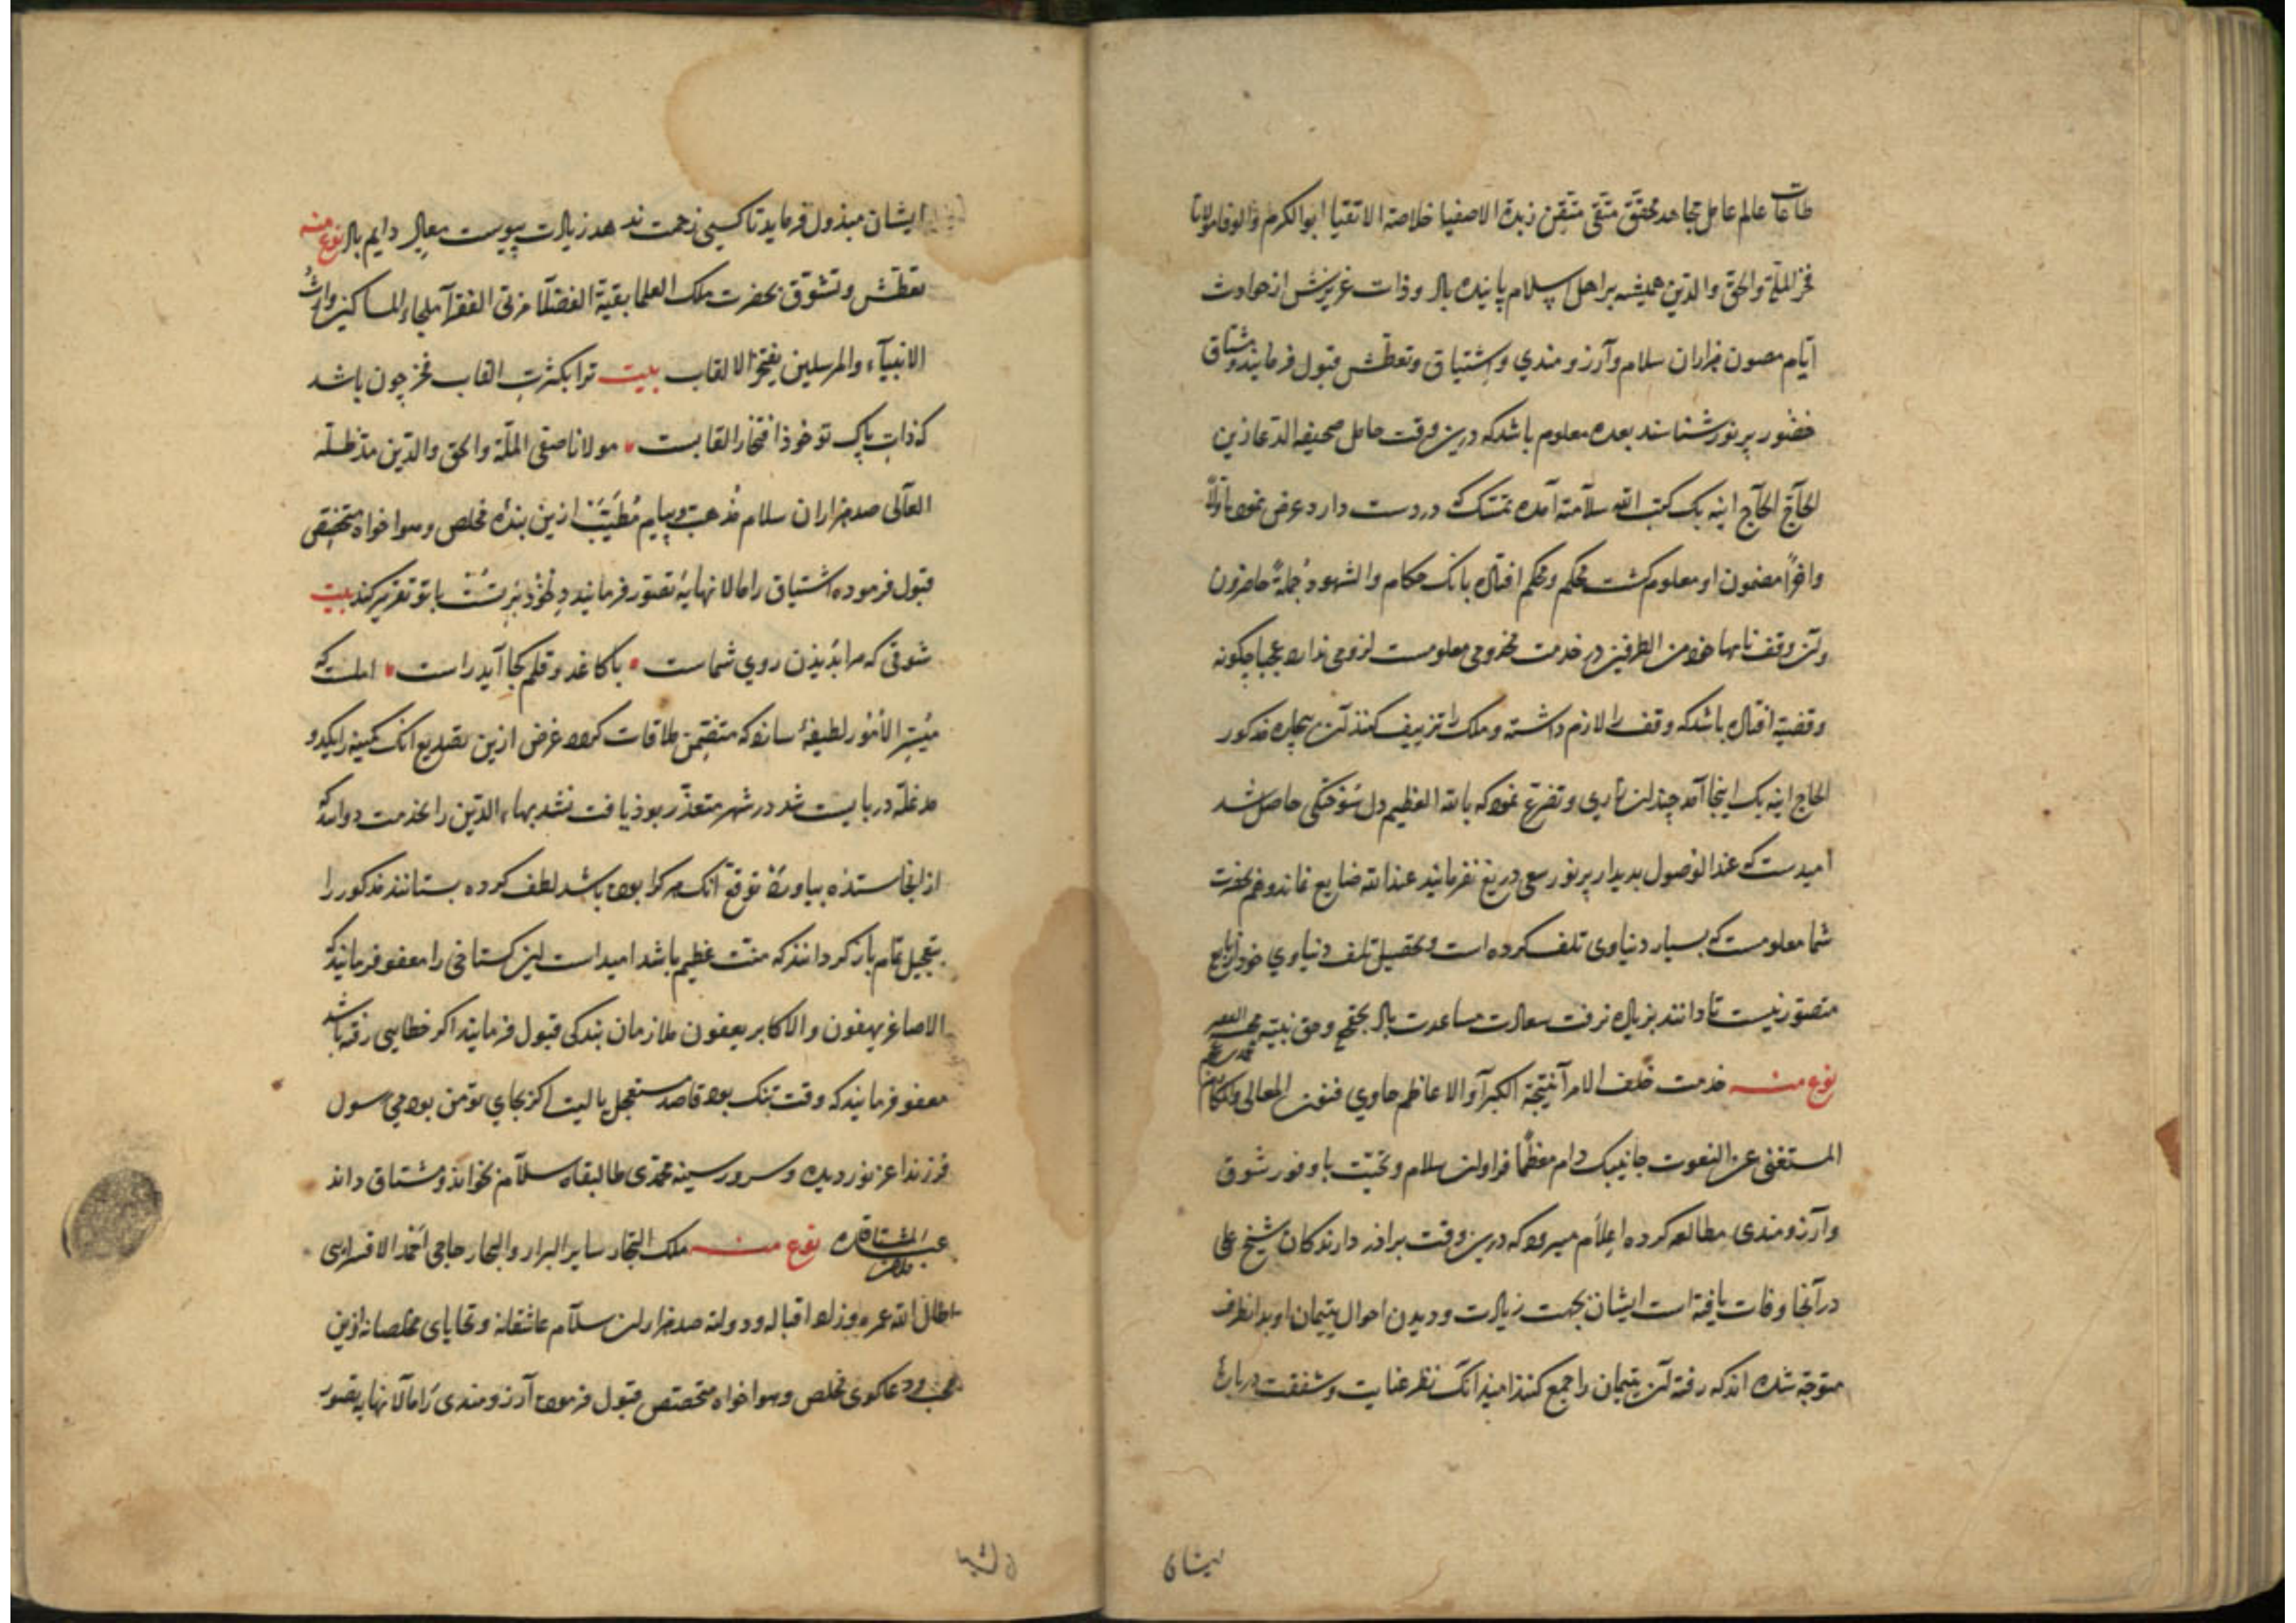 طاعات عالم عامل مجاهد محقق متقی متقن زبدة الاصفیا خلاصة الاتقیا ابو الکرم والوفا مولانا
فخر الملّة والحق والدین همیشه بر اهل اسلام پاینده باد و ذات عزیزش از حوادث
ایّام مصون هزاران سلام و آرزومندی و اشتیاق و تعطّش قبول فرمایند و مشتاق
حضور پر نور شناسند بعده معلوم باشد که درین وقت حامل صحیفه الدعا زین
الحآجّ الحآج اینه بک کتب الله سلامته آمده تمسّک که در دست دارد عرض نمود اوّلاً
وآخراً مضمون او معلوم کشت محکم ومحکم افتاده بانک حکام والشهود جملةً حاضرون
وآن وقف نامها خود من الطرفین در خدمت مخدومی معلومست لزومی ندارد عجبا چکونه
وقفیه افتاده باشد که وقف را لازم داشته و ملک را تزییف کنند آن بیچاره مذکور
الحاج اینه بک اینجا آمد چندان زاری و تضرّع نمود که بالله العظیم دل سوختکی حاصل شد
امیدست که عند الوصول بدیدار پر نور سعی دریغ نفرمایند عند الله ضایع نماند و هم بحضرت
شما معلومست که بسیار دنیاوی تلف کرده است و تحصیل تلف دنیاوی خود از بایع
متصوّر نیست تا دانند بزیاده نرفت سعادت مساعدت باد بحقّ وحق نبیّه محمد
نوع منه خدمت خلف الامرآ نتیجة الکبرآ والاعاظم حاوی فنون المعالی والمکارم
المستغنی عن النعوت جانیبک دام معظّماً فراوان سلام و تحیّت با وفور شوق
وآرزومندی مطالعه کرده اعلام میرود که درین وقت برادر دارندکان شیخ علی
درآنجا وفات یافته است ایشان بجهت زیارت و دیدن احوال یتیمان او بدان طرف
متوجّه شده اند که رفته آن یتیمان را جمع کنند امید آنک نظر عنایت و شفقت در بارهٔ
ایشان
ایشان مبذول فرماید تا کسی زحمت ندهد زیادت پیوست معالی دایم باد نوع منه
تعطّش و تشوّق بحضرت ملک العلما بقیّة الفضلآ مربّی الفقرآ ملجاء المساکین وارث
الانبیآء والمرسلین مفتخر الالقاب بیت ترا بکثرت القاب فخر چون باشد
که ذات پاک تو خود افتخار القابست مولانا صفی الملّة والحق والدین مدّ ظلّه
العآلی صد هزاران سلام مُذهب و پیام مُطیّب ازین بندهٔ مخلص و هواخواه متحقّقی
قبول فرموده اشتیاق را ما لا نهایه تصوّر فرمایند با تو تقریر کند بیت
شوقی که مرا بدیذن روی شماست با کاغد و قلم کجا آید راست املست که
میسّر الأمور لطیفهٔ سازد که متضمّن ملاقات کردد غرض ازین تصدیع آنک کمینه را یکدو
مد غلّه دربایست شد در شهر متعذّر بود یافت نشد بهاء الدّین را بخدمت دوانده
از آنجا ستذه بیاورد توقع آنک هر کرا بوده باشد لطف کرده بستانند مذکور را
بتعجیل تمام باز کردانند که منّت عظیم باشد امید است این کستاخی را معفو فرمایند که
الاصاغر یهفون والاکابر یعفون ملازمان بندکی قبول فرمایند اکر خطایی رفته باشد
معفو فرمایند که وقت تنک بود قاصد مستعجل یا لیت اکر بجای تو من بودمی رسول
فرزند اعز نور دیده و سرور سینه محمّدی طال بقاه سلام بخواند و مشتاق داند
نوع منه ملک التجّار سایر البراری والبحار حاجی احمد الاقسرایی
اطال الله عمره وزاد اقباله و دولته صد هزاران سلام عاشقانه و تحایای مخلصانه ازین
محب و دعاکوی مخلص و هواخواه متخصّص قبول فرموده آرزومندی را ما لا نهایه تصوّر